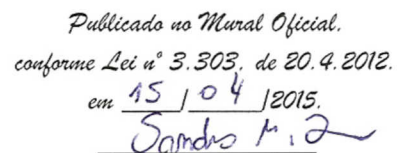 Publicado no Mural Oficial,
conforme Lei nº 3.303, de 20.4.2012.
em 15 / 04 /2015.